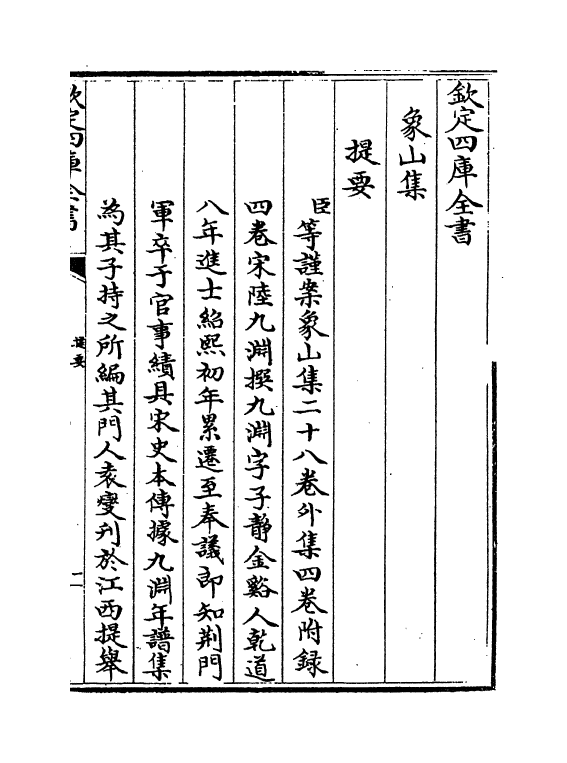 欽定四庫全書
象山集
提要
臣等謹案象山集二十八卷外集四卷附録
四卷宋陸九淵撰九淵字子静金谿人乾道
八年進士紹熙初年累遷至奉議郎知荆門
軍卒于官事績具宋史本傳據九淵年譜集
為其子持之所編其門人袁燮刋於江西提舉
欽定四庫全書
提要
二